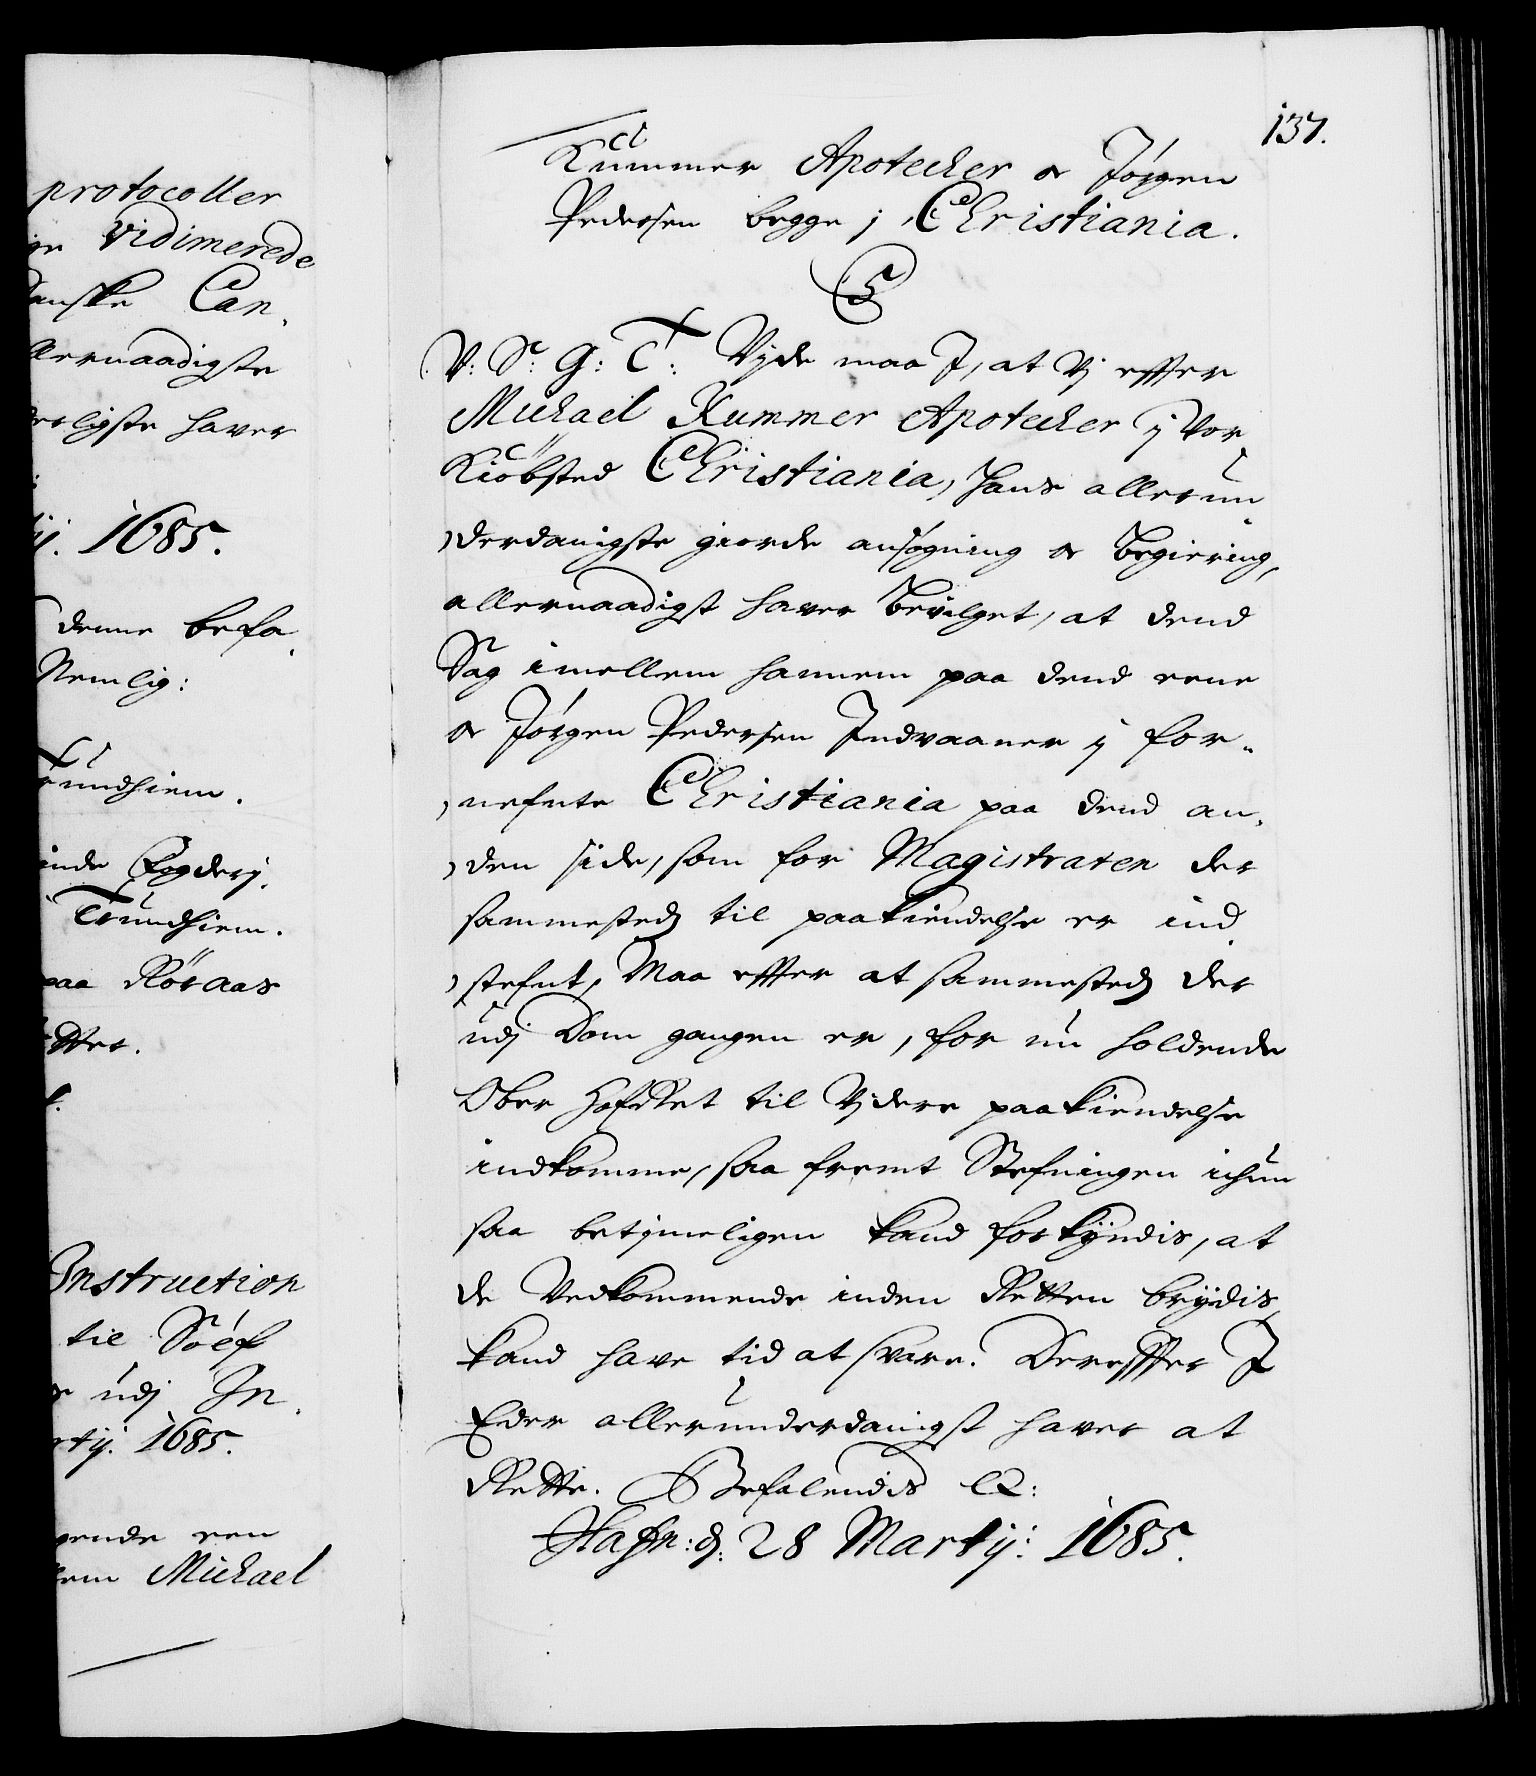 protocoller
Vidimerede
Danske Can¬
allernaadigste
haver
1685.
denne befa¬
Nemlig:
Trundhiem.
Fogderj.
Trundhiem.
paa Röraas
Instruction
til
udj In¬
Martij. 1685.
een
Michael
137.
Kummer Apotecker oc Jörgen
Pedersen begge j Christiania.
C5
V: S: G: T: Vide maa I, at Vj effter
Michael Kummer Apotecker ij Vor
Kiöbsted Christiania, hans allerun¬
derdanigste giorde ansögning oc Begiering,
allernaadigst haver Bevilget, at dend
Sag imellem hannem paa dend eene
oc Jörgen Pedersen Indvaaner ij for¬
nefnte Christiania paa dend an¬
den side, som for Magistraten der
sammesteds til paakiendelse er ind¬
stefnt, Maa effter at sammesteds der
udj Dom gangen er, for nu holdende
Ober HofRet til Vjdere paakiendelse
indkomme, saa fremt Stefningen ichun
saa betjmeligen kand forkÿndis, at
de Vedkommende inden Retten brÿdis,
kand have tid at svare. Dereffter I
Eder allerunderdanigst haver at
Rette. Befalendis etc:
Hafn: d. 28 Martij: 1685.